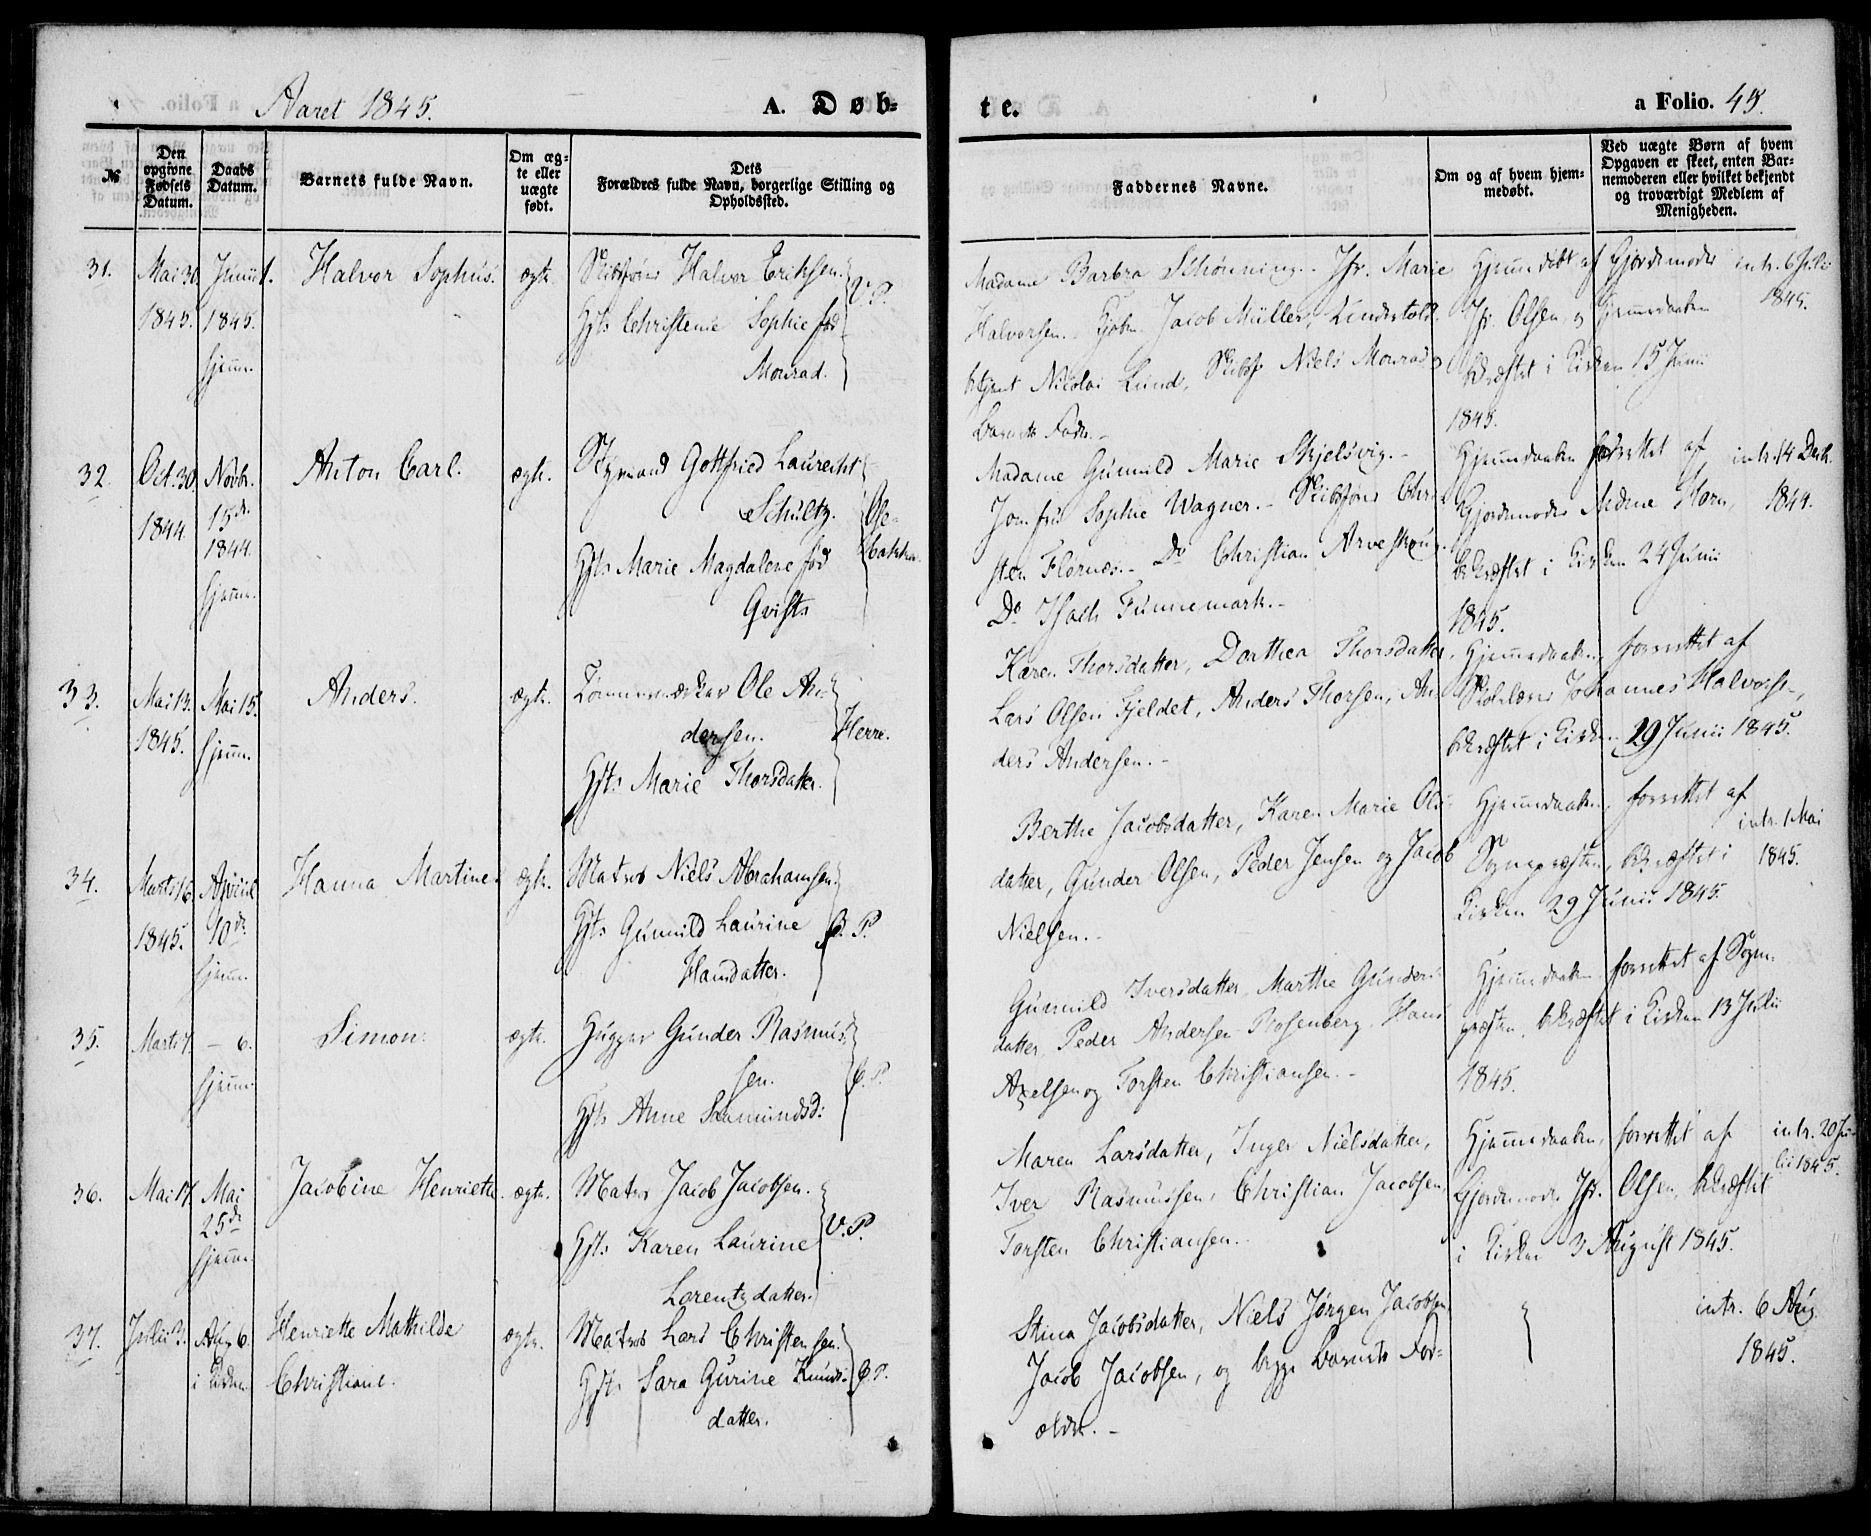 Aaret 1845.
A. Døb-
te.
a Folio. 45.
№
Den opgivne Fødsels Datum.
Daabs Datum.
Barnets fulde Navn.
Om ægte eller uægte født.
Dets
Forældres fulde Navn, borgerlige Stilling og
Opholdssted.
Faddernes Navne.
Om og af hvem hjem-
medøbt.
Ved uægte Børn af hvem
Opgaven er skeet, enten Bar-
nemoderen eller hvilket bekjendt
og troværdigt Medlem af
Menigheden.
31.
Mai 30.
1845.
Junii 1.
1845.
hjem.
Halvor Sophus.
ægte.
Skibsfører Halvor Eriksen.
Hst. Christense Sophie fød
Monrad.
V. P.
Madame Barbra Schønning. Jfr. Marie
Halvorsen. Kjøbm. Jacob Müller, Undertold-
betjent Nicolai Lund, Skibsf. Niels Monrad
Barnets Fader.
Hjemdøbt af Gjordemoder
Jfr. Olsen og Hjemmedaaben
bekræftet i Kirken 15 Junii
1845.
intr. 6 Julii
1845.
32.
Oct. 30.
1844.
Novbr.
15de
1844.
hjem.
Anton Carl.
ægte.
Styrmand Gottfried Laurentst
Schultz.
Hst. Marie Magdalene fød
Qvist
Ose-
bakken
Madame Gunnild Marie Skjelsvig.
Jomfru Sophie Wagner. Skibsfører Chri-
sten Flornes. Do Christian Arveskoug.
Do Isach Funnemark.
Hjemmedaaben forrettet af
Gjordemoder Mdme Horn,
bekræftet i Kirken 24 Junii
1845.
intr. 14 Decbr.
1844.
33.
Mai 13.
1845.
Mai 15.
hjem.
Anders.
ægte.
Tømmermærker Ole An-
dersen.
Hst. Marie Thorsdatter.
Herre.
Karen Thorsdatter, Dorthea Thorsdatter.
Lars Olsen Fjeldet, Anders Thorsen, An-
ders Andersen.
Hjemmedaaben, forrettet af
Skolelærer Johannes Halvors-,
bekræftet i Kirken 29 Junii 1845.
34.
Marts 16.
1845.
April
10de
hjem.
Hanna Martine.
ægte.
Matros Niels Abrahamsen.
Hst. Gunnild Laurine
Hansdatter.
Ø. P.
Berthe Jacobsdatter, Karen Marie Ols-
datter, Gunder Olsen, Peder Jensen og Jacob
Nielsen.
Hjemmedaaben, forrettet af
Sognepræsten, bekræftet i
Kirken 29 Junii 1845.
intr. 1 Mai
1845.
35.
Marts 7.
— 6.
hjem.
Simon.
ægte.
Hugger Gunder Rasmus-
sen.
Hst. Anne Simundsd:
Ø. P.
Gunnild Iversdatter, Marthe Gunders-
datter, Peder Andersen Rosenberg. Hans
Axelsen og Torsten Christiansen.
Hjemmedaaben forrettet af Sogne-
præsten, bekræftet i Kirken 13 Julii
1845.
36.
Mai 17.
Mai
25de
hjem.
Jacobine Henriette.
ægte.
Matros Jacob Jacobsen.
Hst. Karen Laurine
Lorentzdatter.
V. P.
Maren Larsdatter, Inger Nielsdatter,
Iver Rasmussen, Christian Jacobsen,
Torsten Christiansen.
Hjemmedaaben, forrettet af
Gjordemoder Jfr. Olsen, bekræftet
i Kirken 3 August 1845.
intr. 20 Ju-
lii 1845.
37.
Julii 3.
Aug. 6.
i Kirken
Henriette Mathilde
Christiane.
ægte.
Matros Lars Christensen.
Hst. Sara Gurine Knuds-
datter.
Ø. P.
Stina Jacobsdatter, Niels Jørgen Jacobsen
Jacob Jacobsen, og begge Barnets For-
ældre.
intr. 6 Aug.
1845.